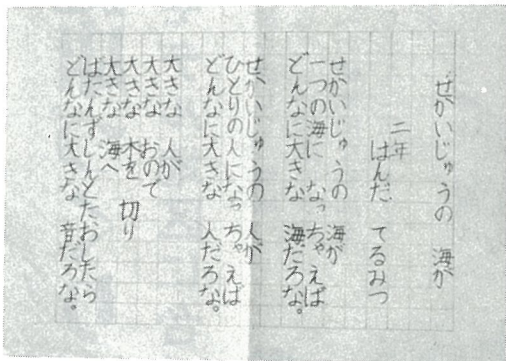 せかいじゅうの 海が
二年
はんだ てるみつ
せかいじゅうの 海が
一つの海に なっちゃえば
どんなに大きな 海だろな。
せかいじゅうの 人が
ひとりの人になっちゃえば
どんなに大きな 人だろな。
大きな 人が
大きな おので
大きな 木を 切り
大きな 海へ
ばたんずしんとたおしたら
どんなに大きな 音だろな。